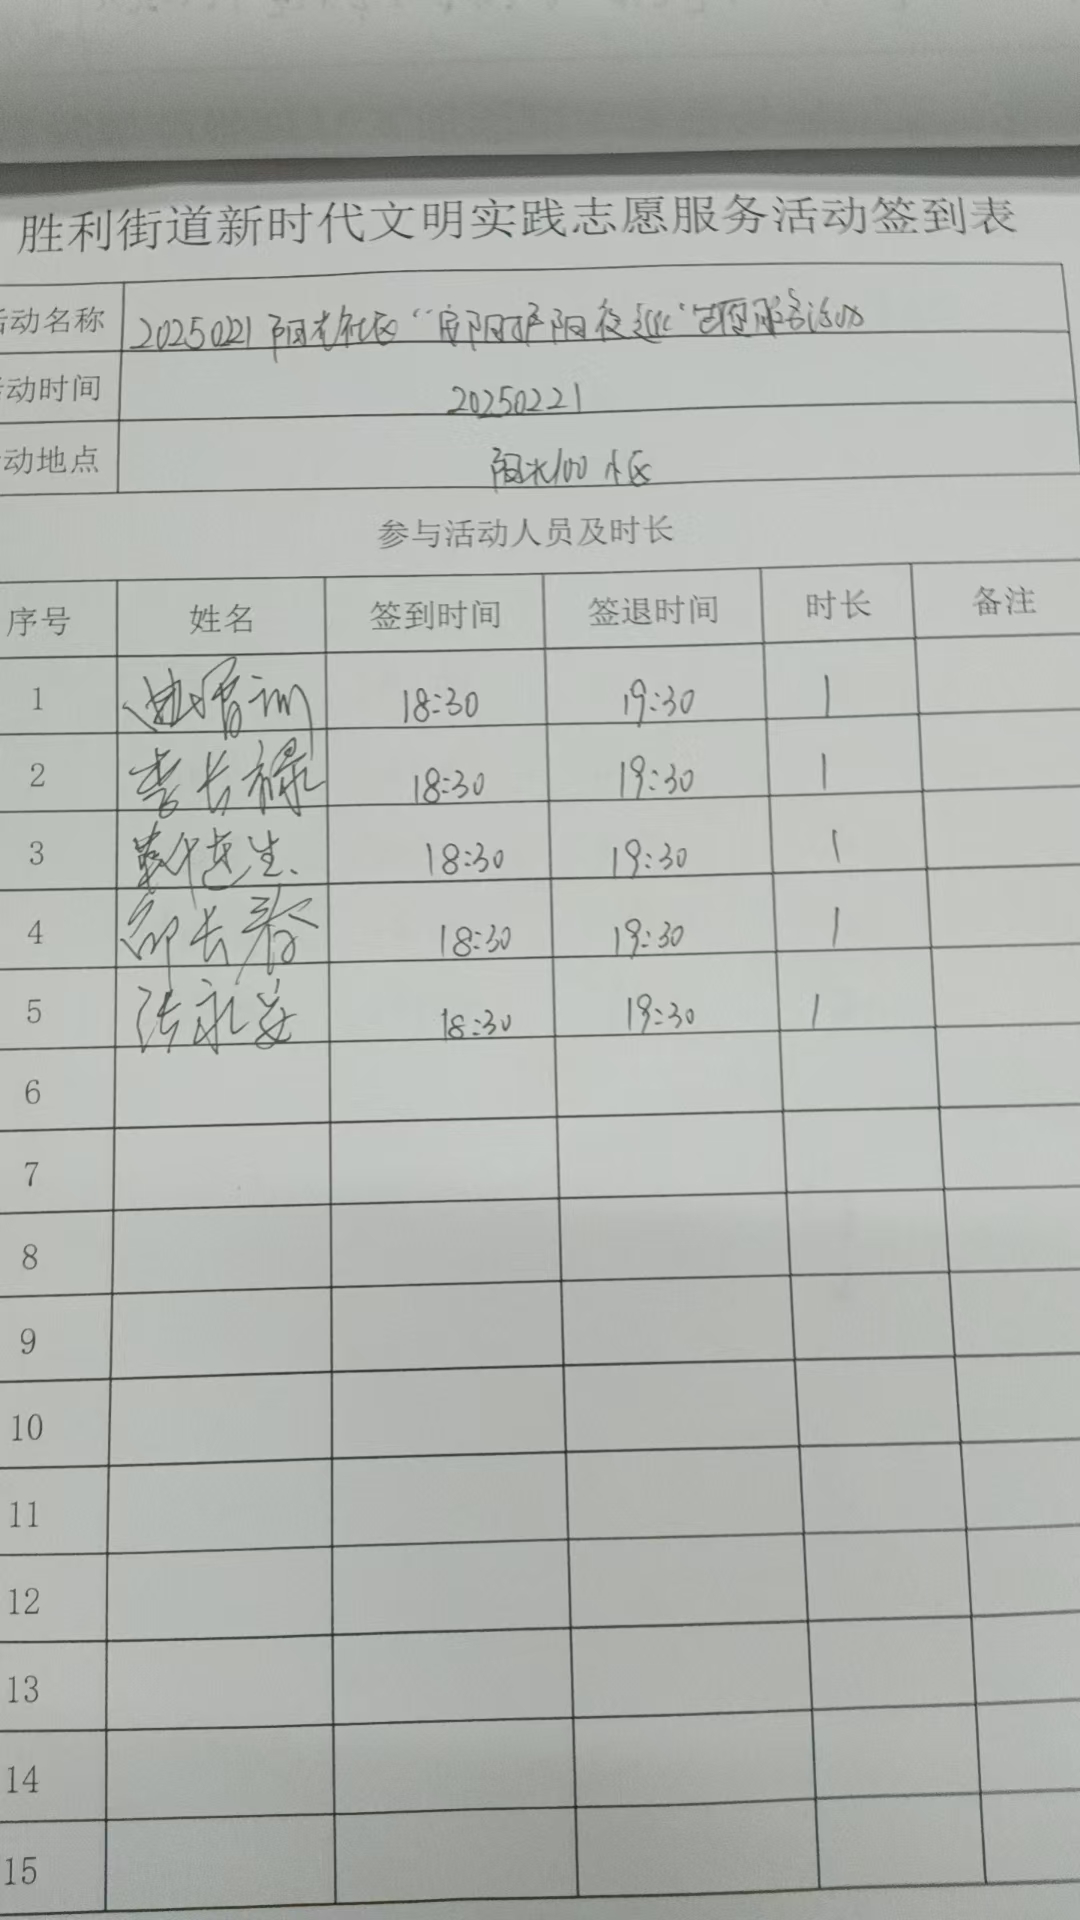 胜利街道新时代文明实践志愿服务活动签到表
活动名称 20250221阳光社区“阳护阳夜巡”志愿服务活动
活动时间 20250221
活动地点 阳光100小区
参与活动人员及时长
序号 姓名 签到时间 签退时间 时长 备注
1 18:30 19:30 1
2 李长禄 18:30 19:30 1
3 生 18:30 19:30 1
4 邵长春 18:30 19:30 1
5 张永安 18:30 19:30 1
6
7
8
9
10
11
12
13
14
15